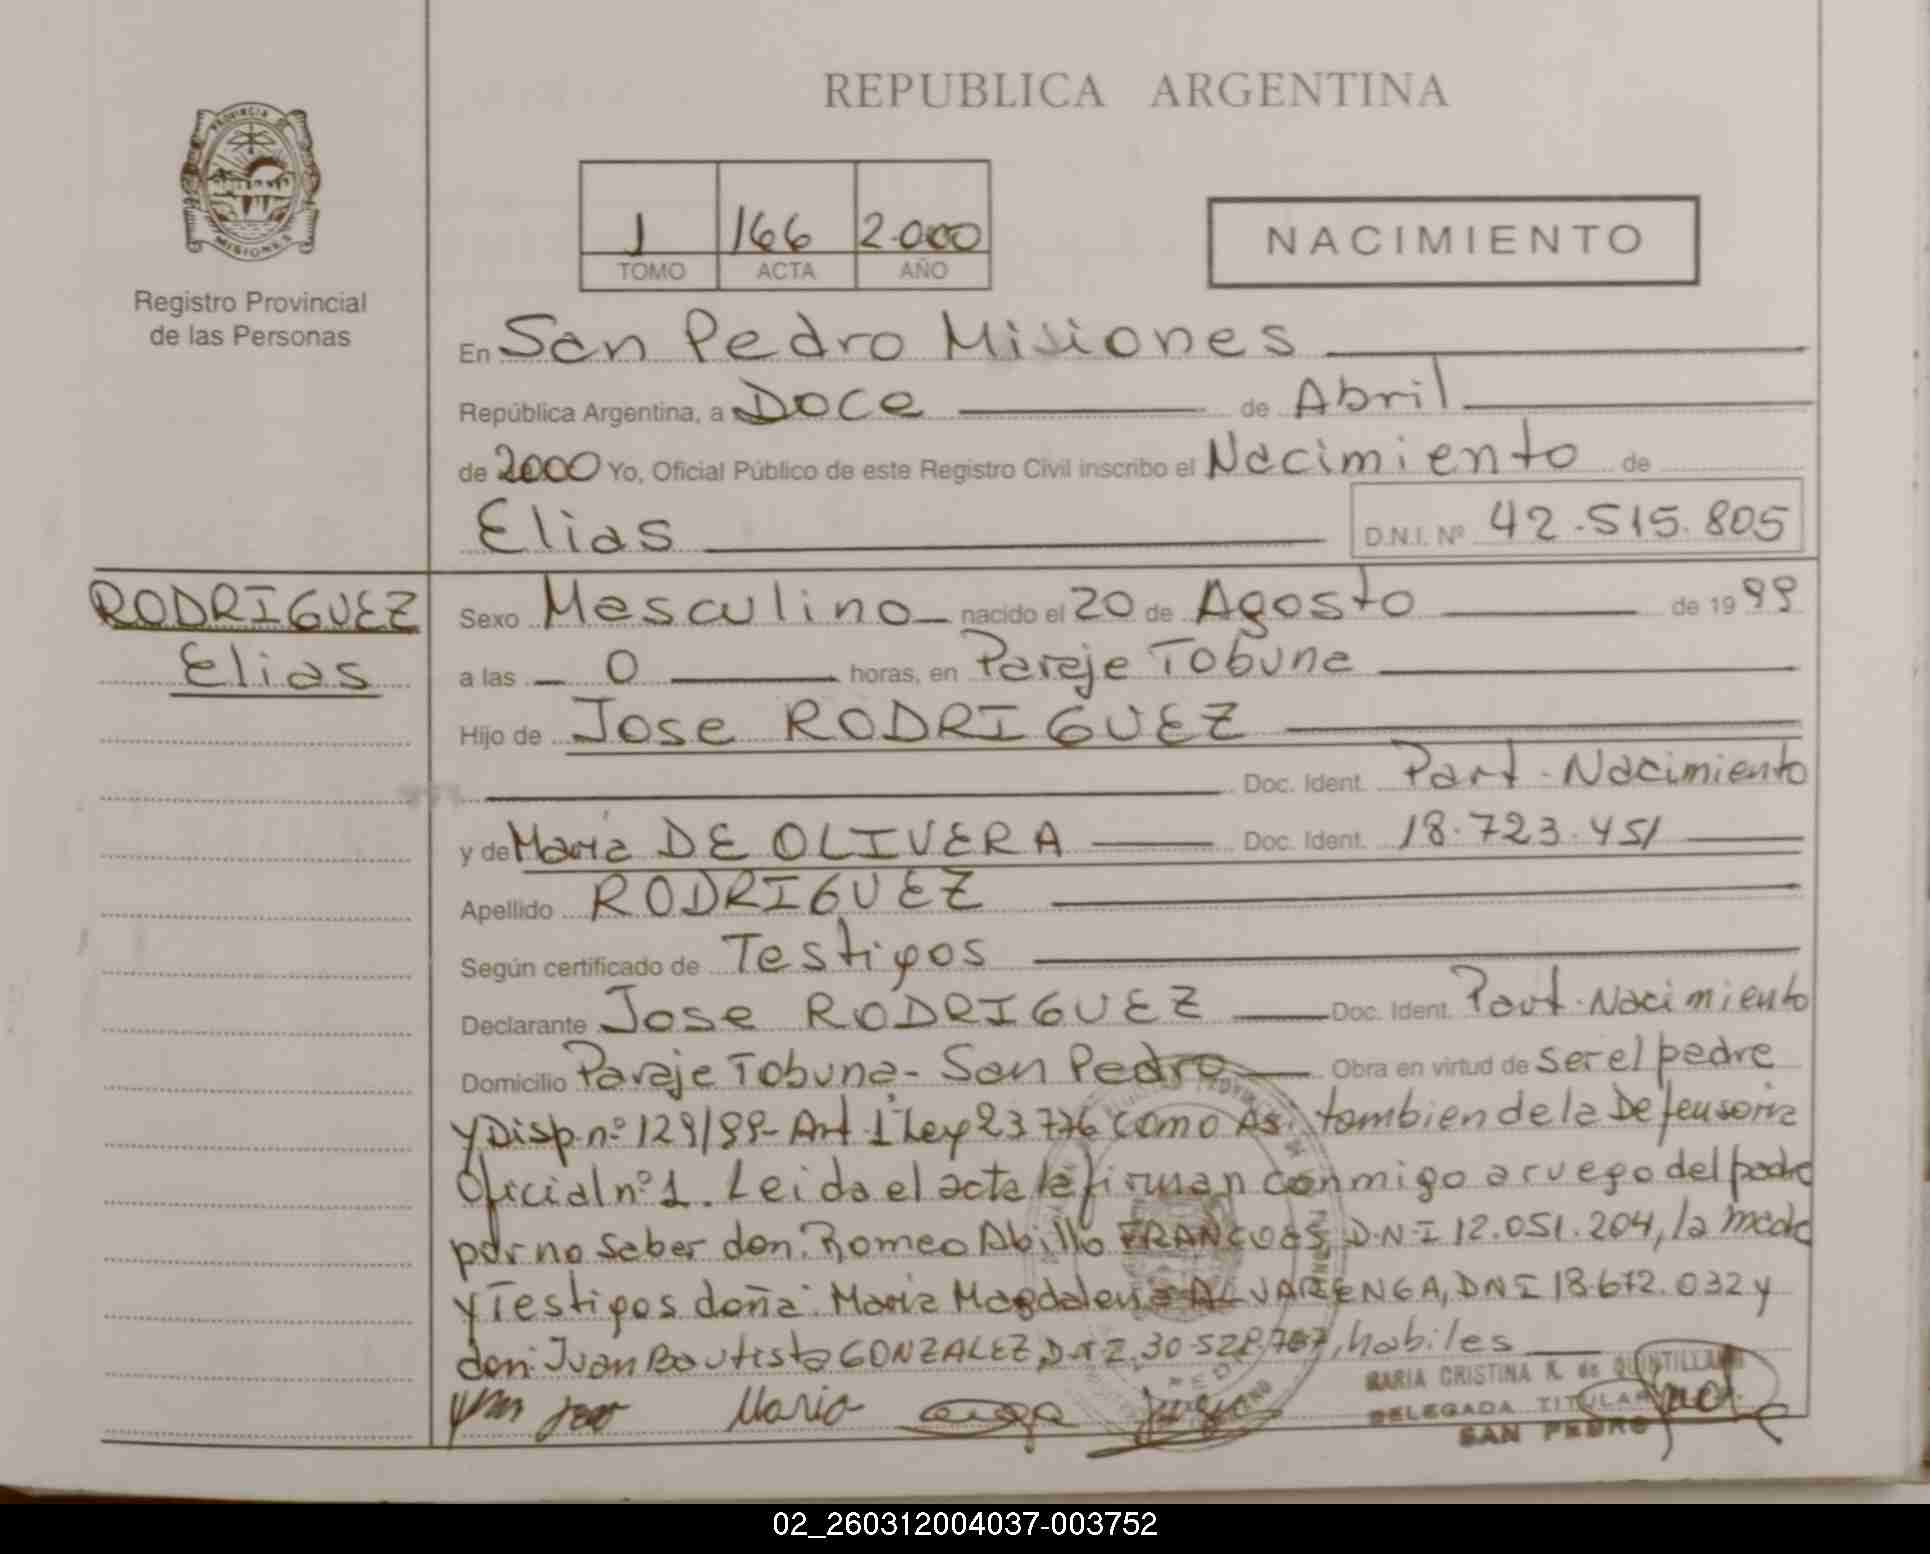 REPUBLICA ARGENTINA
PROVINCIA DE
MISIONES
Registro Provincial
de las Personas
1 166 2.000
TOMO ACTA AÑO
NACIMIENTO
En San Pedro Misiones
República Argentina, a Doce de Abril
de 2000 Yo, Oficial Público de este Registro Civil inscribo el Nacimiento de
Elias D.N.I. Nº 42.515.805
RODRIGUEZ
Elias
Sexo Masculino nacido el 20 de Agosto de 1999
a las 0 horas, en Paraje Tobuna
Hijo de Jose RODRIGUEZ
Doc. Ident. Part. Nacimiento
y de Maria DE OLIVERA Doc. Ident. 18.723.451
Apellido RODRIGUEZ
Según certificado de Testigos
Declarante Jose RODRIGUEZ Doc. Ident. Part. Nacimiento
Domicilio Paraje Tobuna - San Pedro Obra en virtud de ser el padre
y Disp. nº 129/99 - Art 1º Ley 23776 como Asi tambien de la Defensoria
Oficial nº 1. Leida el acta la firman conmigo a ruego del padre
por no saber don: Romeo Abillo D.N.I 12.051.204, la madre
y Testigos doña: Maria Magdalena ALVARENGA, DNI 18.672.032 y
don: Juan Bautista GONZALEZ, D.N.I. 30.528.767, habiles
Maria
MARIA CRISTINA K. de QUINTILLAN
DELEGADA TITULAR
SAN PEDRO
02_260312004037-003752